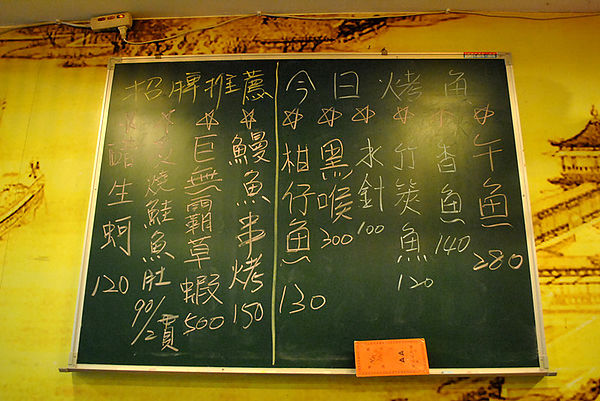 招牌推薦
醋生蚵 120
炙燒鮭魚肚 90/2貫
巨無霸草蝦 500
鰻魚串烤 150
今日烤魚
柑仔魚 130
黑喉 300
水針 100
竹筴魚 120
香魚 140
午魚 280